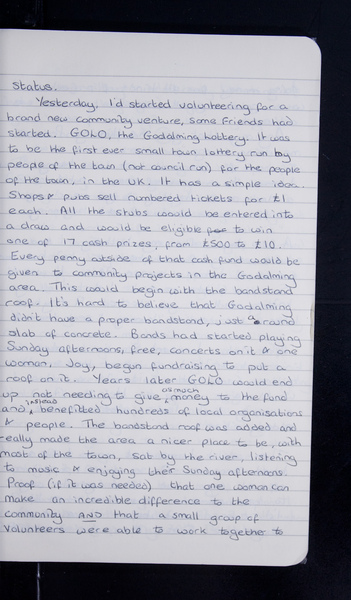 status.
Yesterday, I'd started volunteering for a
brand new community venture, some friends had
started. GOLO, the Godalming lottery. It was
to be the first ever small town lottery run by
people of the town (not council run) for the people
of the town, in the UK. It has a simple idea.
Shops & pubs sell numbered tickets for £1
each. All the stubs would be entered into
a draw and would be eligible for to win
one of 17 cash prizes, from £500 to £10.
Every penny outside of that cash fund would be
given to community projects in the Godalming
area. This would begin with the bandstand
roof. It's hard to believe that Godalming
didn't have a proper bandstand, just a round
slab of concrete. Bands had started playing
Sunday afternoons, free, concerts on it & one
woman, Joy, begun fundraising to put a
roof on it. Years later GOLO would end
up not needing to give as much money to the fund
and instead benefitted hundreds of local organisations
& people. The bandstand roof was added and
really made the area a nicer place to be, with
most of the town, sat by the river, listening
to music & enjoying their Sunday afternoons.
Proof (if it was needed) that one woman can
make an incredible difference to the
community AND that a small group of
volunteers were able to work together to